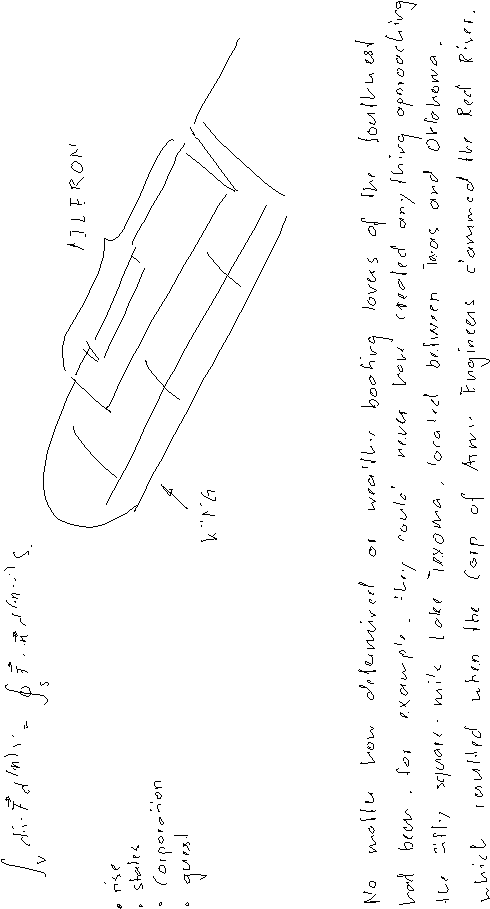 ∫_V div F⃗ d^(n)V = ∮_S F⃗ · n⃗ d^(n-1) S.
• rise
• states
• Corporation
• guest
AILERON
WING
No matter how determined or wealthy boating lovers of the Southwest
had been, for example, they could never have created anything approaching
the fifty square-mile Lake Texoma, located between Texas and Oklahoma,
which resulted when the Corp of Army Engineers dammed the Red River.